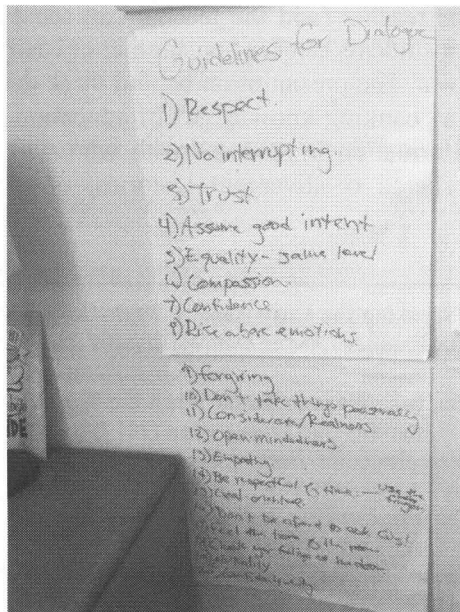 Guidelines for Dialogue
1) Respect.
2) No interrupting
3) Trust
4) Assume good intent
5) Equality - same level
6) Compassion
7) Confidence
8) Rise above emotions
9) forgiving
10) Don't take things personally
11) Considerate/Realness
12) Open mindedness
13) Empathy
14) Be respectful of time — Use the finger
15)
16) Don't be afraid to ask
Feel the tone of the room
Check your feelings at the door
Confidentiality